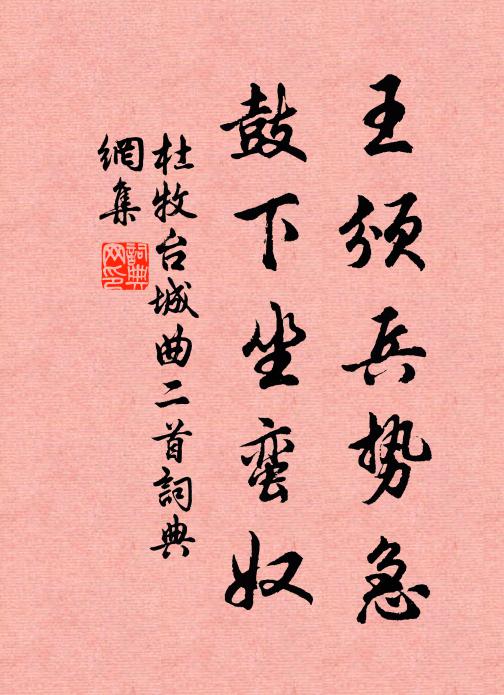 王颁兵势急
鼓下坐蛮奴
杜牧台城曲二首詞典
網集
詞典
网印